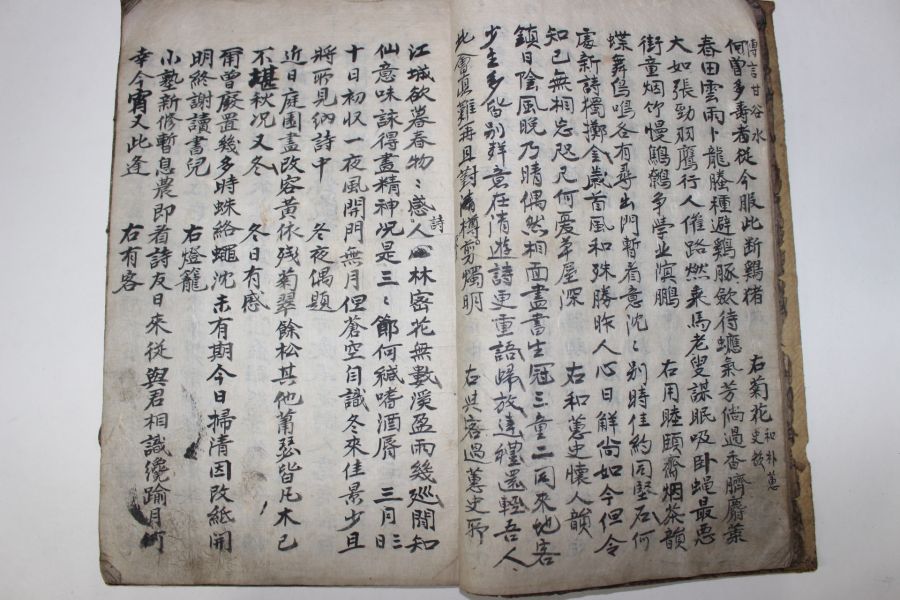 傳言甘谷水
何曾多壽者從今服此斷鷄猪　右菊花 和朴蕙史韻
春田雲雨卜龍塍種避鷄豚斂待蟾氣芳倘過香臍麝葉
大如張勁羽鷹行人催路燃乘馬老叟謀眠吸臥蝇最惡
街童烟竹慢鷦鷯多學业溟鵬　右用睦頤齋烟茶韻
蝶舞鳥鳴各有尋出門暫看意沈〻別時佳約同堅石何
處新詩擲金歲首風和殊勝昨人心日解尙如今但令
知己無相忘咫尺何憂草屋深　右和蕙史懷人韻
鎮日陰風晚乃晴偶然相面盡書生冠三童二同來地客
少主多皆別詳意在淸遊詩更重語歸放達禮還輕吾人
此會眞難再且對淸樽剪燭明　右與客過蕙史
江城欲暮春物〻感人詩林密花無數溪盈雨幾巡閒知
仙意味詠得畫精神况是三〻節何緘嗜酒脣　三月三日
十日初收一夜風開門無月但蒼空自識冬來佳景少且
將所見納詩中　冬夜偶題
近日庭園盡改容黃休殘菊翠餘松其他蕭瑟皆凡木已
不堪秋况又冬　冬日有感
甭曾廢置幾多時蛛絡蠅沈未有期今日掃清因改紙開
明終謝讀書兒　右燈籠
小塾新修暫息農即看詩友日來從與君相識纔踰月何
幸今宵又此逢　右有客